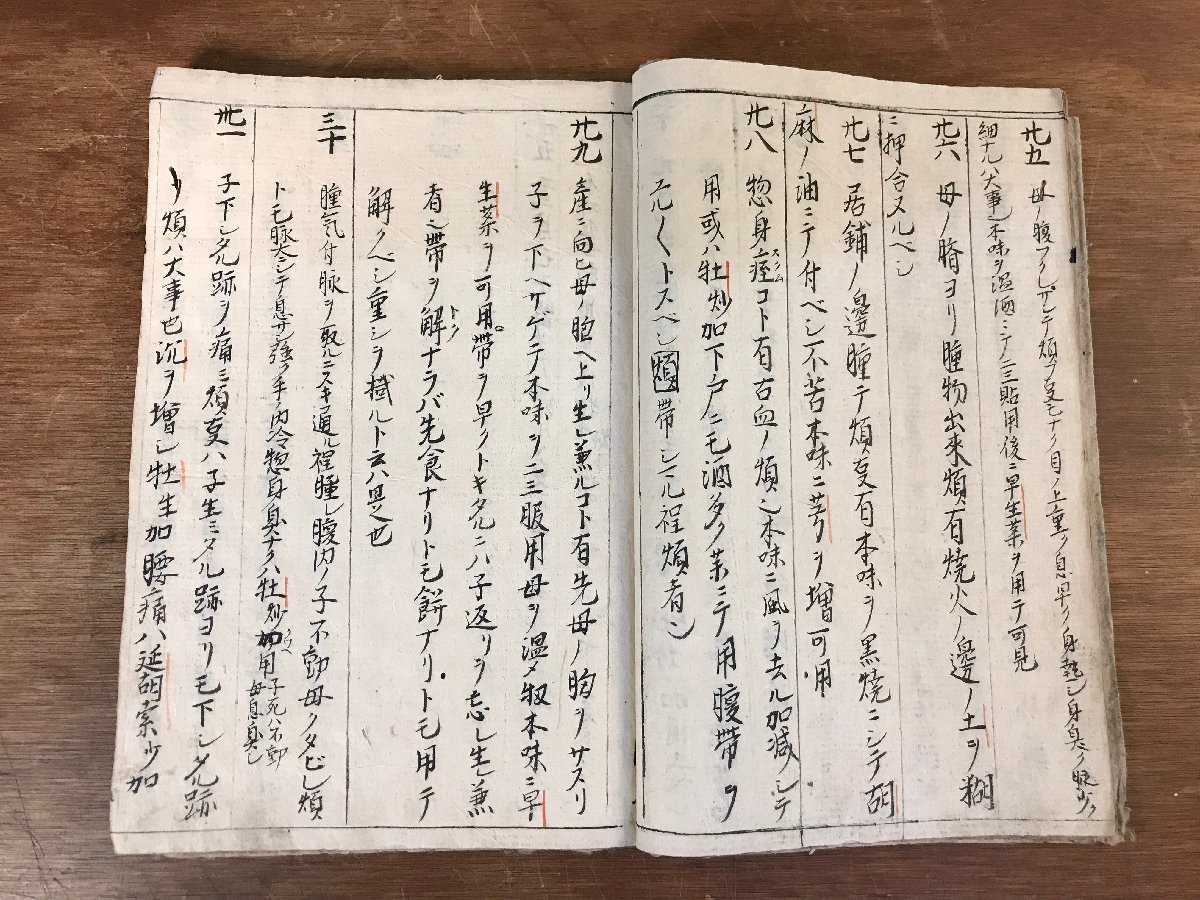 廿五 母ノ腹フクレサシテ煩フ支モナク目ノ上重ク息早ク身熱シ身臭ク脉少ク
細ナルハ大事シ本味ヲ温酒ニテ二三貼用後ニ早生菜ヲ用テ可見
廿六 母ノ脐ヨリ腫物出来煩有焼火ノ邊ノ土ヲ糊
ニ押合ヌルベシ
廿七 居鋪ノ邊腫テ煩支有本味ヲ黒焼ニシテ胡
麻ノ油ニテ付ベシ不苦本味ニ芎ヲ増可用
廿八 惣身痓コト有古血ノ煩シ本味ニ風ヲ去ル加減シテ
用或ハ牡炒加下戸ニモ酒多ク菜ニテ用腹帯ヲ
元ノ〱トスベシ煩帯シマル程煩者シ
廿九 產ニ向ヒ母ノ胸ヘ上リ生レ兼ルコト有先母ノ胸ヲサスリ
子ヲ下ヘサゲテ本味ヲ二三服用母ヲ温メ扨本味ニ早
生菜ヲ可用帯ヲ早クトキタルニハ子返リヲ忘レ生レ兼
者シ帯ヲ解ナラバ先食ナリトモ餅ナリトモ用テ
解クベシ重シヲ拭ルト云ハ是也
三十 腫気付脉ヲ取ルニスキ通ル程腫レ腹内ノ子不動母クタビレ煩
トモ脉大シテ息サシ強ク手ノ内冷惣身臭ナクハ牡炒加用子死ハ不動
母息臭シ
丗一 子下シタル跡ヲ痛ミ煩支ハ子生ミタル跡ヨリモ下シタル跡
ノ煩ハ大事也沉ヲ增シ牡生加腰痛ハ延胡索少加